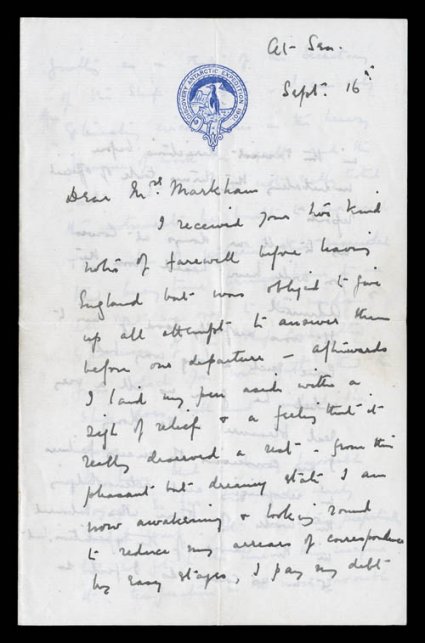 At Sea.
DISCOVERY ANTARCTIC EXPEDITION 1901
Septr. 16th
Dear Mrs Markham
I received your two kind
notes of farewell before leaving
England but was obliged to give
up all attempt to answer them
before our departure – afterwards
I laid my pen aside with a
sigh of relief & a feeling that it
really deserved a rest – from this
pleasant but dreamy state I am
now awakening & looking round
to reduce my arrears of correspondence
by easy stages, I pay my debt